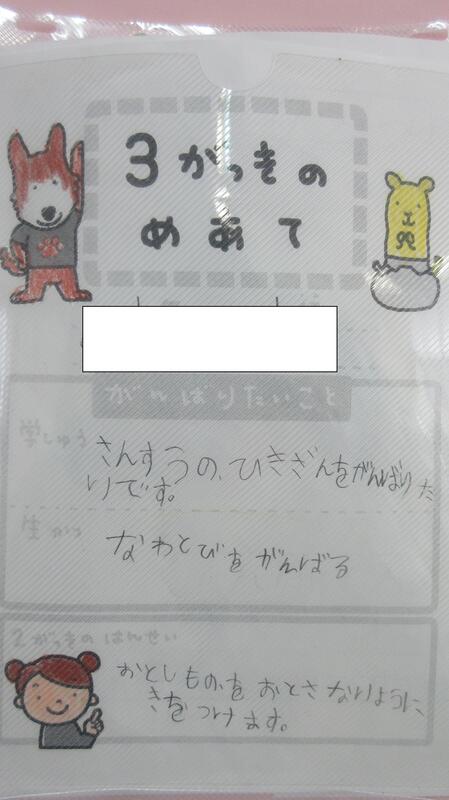 3がっきの
めあて
がんばりたいこと
学しゅう
さんすうの、ひきざんをがんばりた
いです。
生かつ
なわとびをがんばる
2がっきのはんせい
おとしものをおとさないように、
きをつけます。